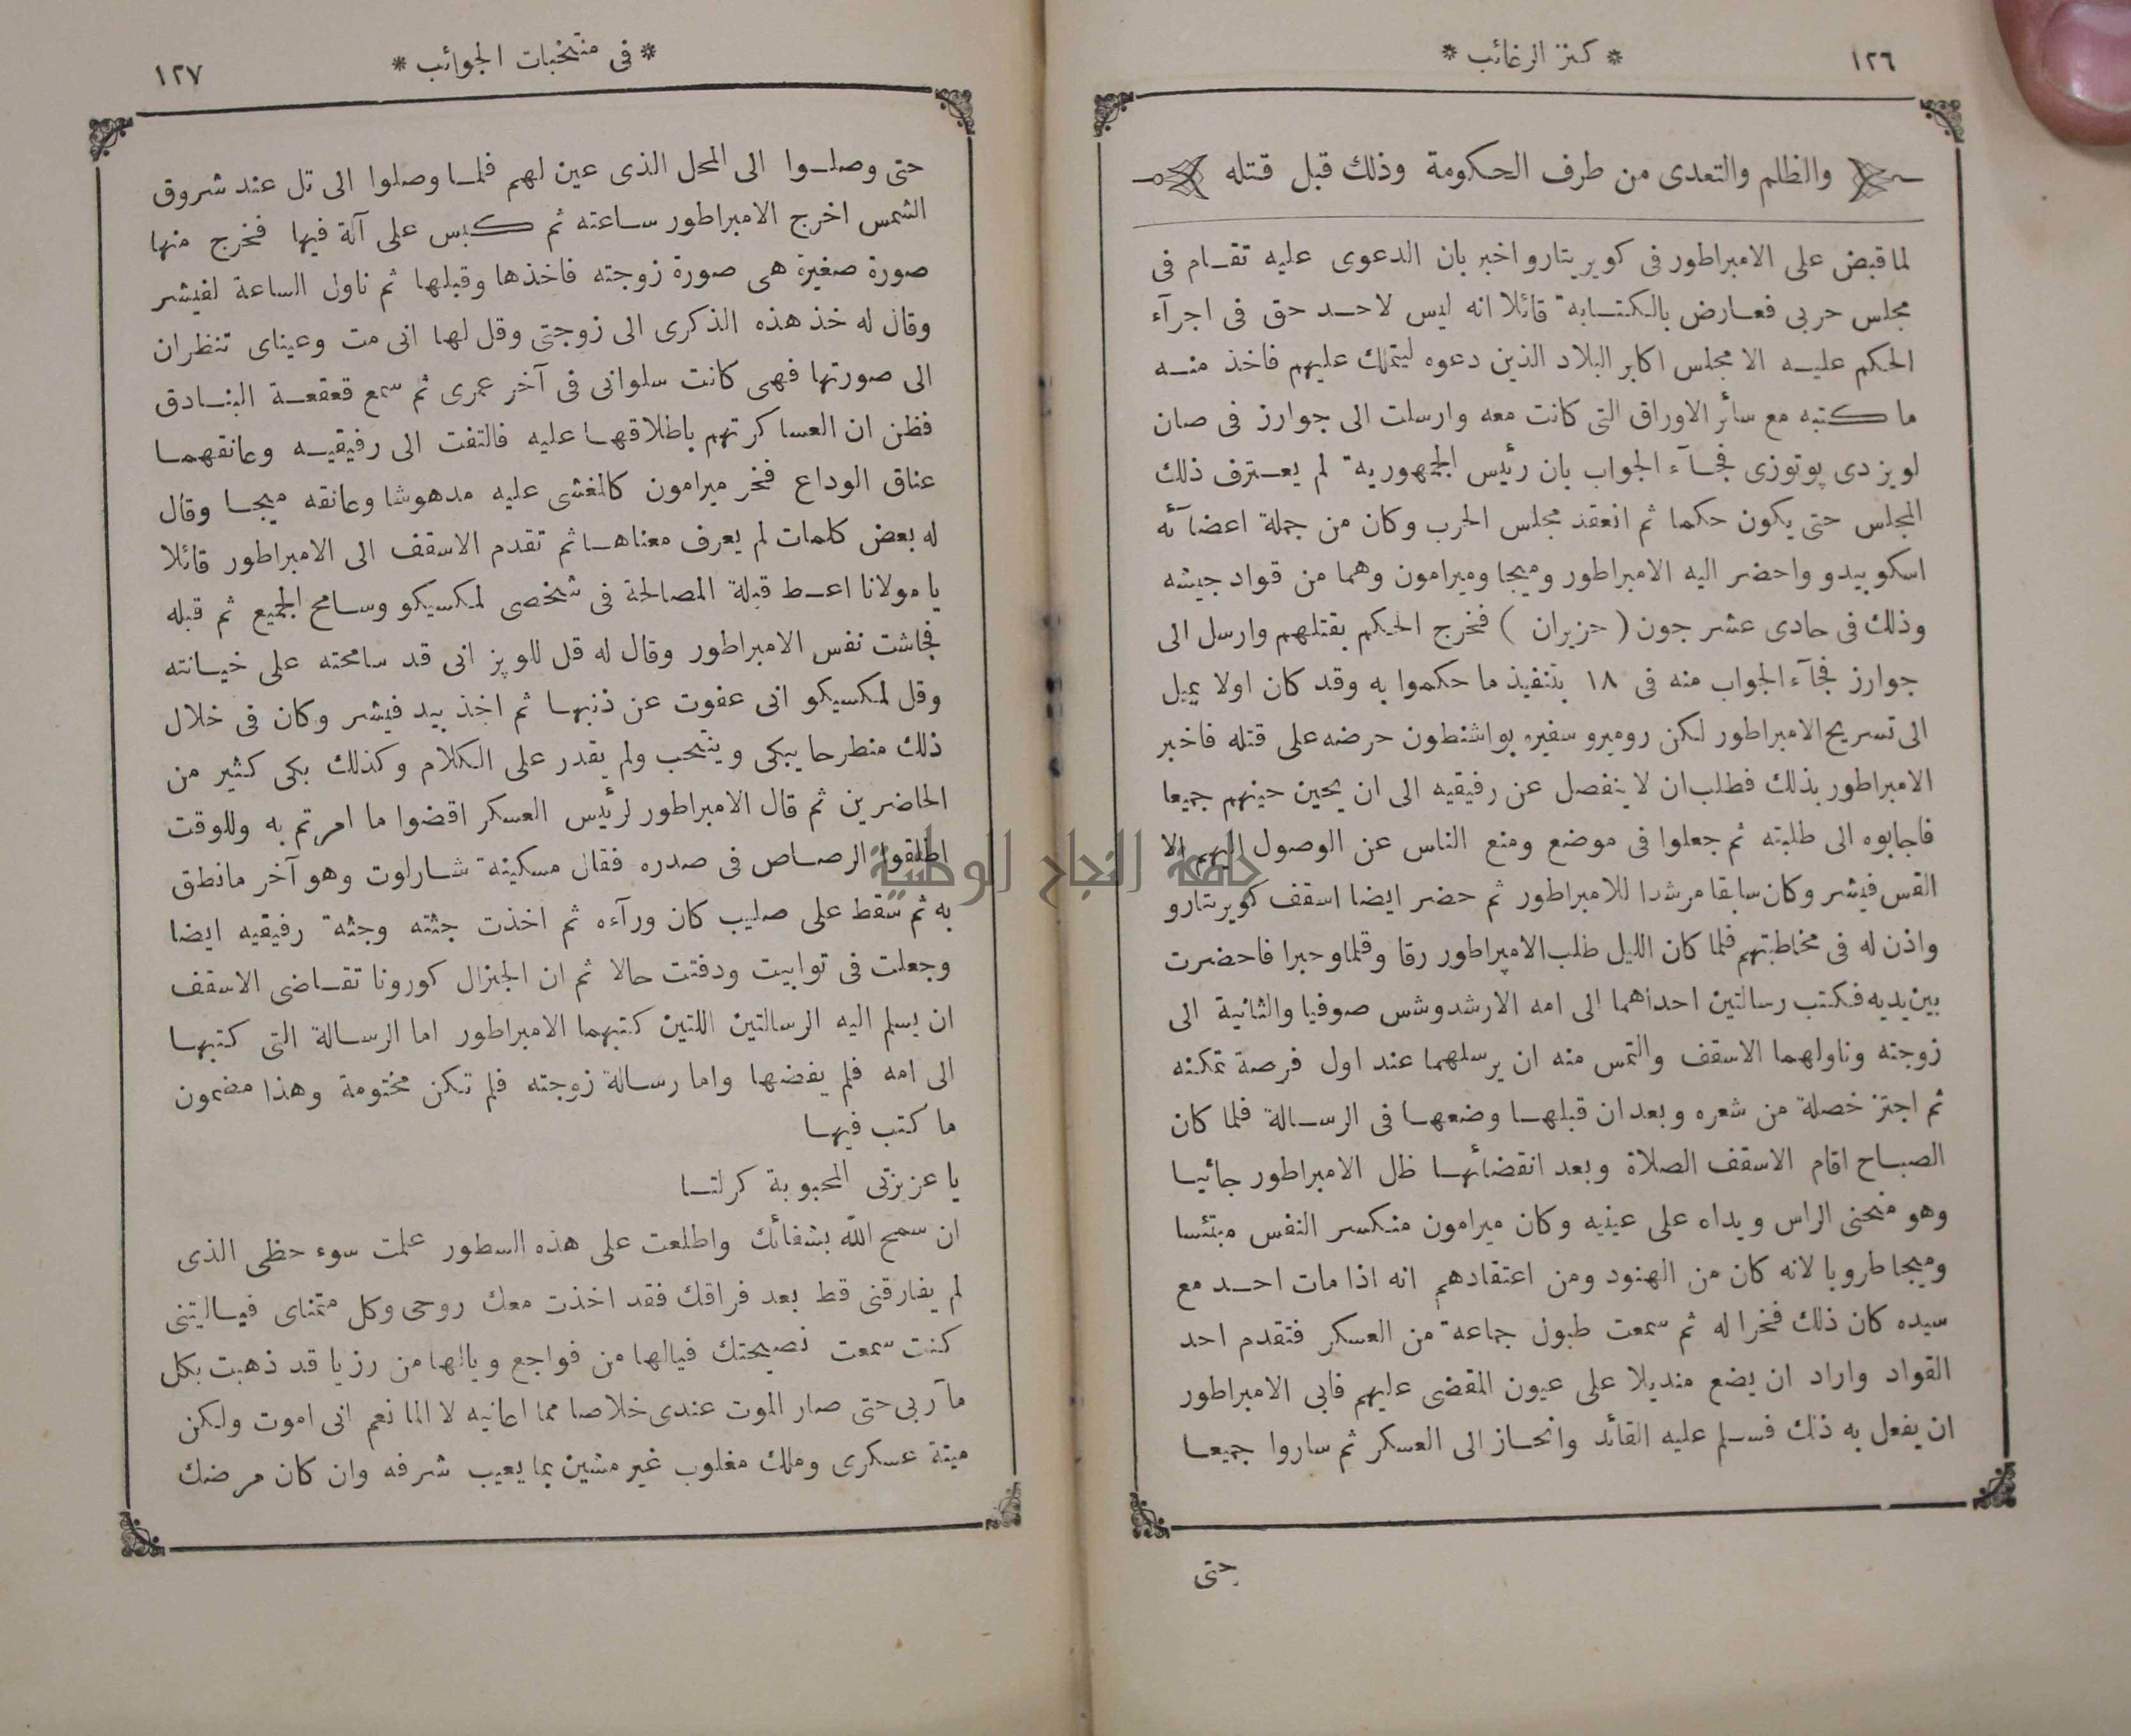 ١٢٦
* كنز الرغائب *
والظلم والتعدى من طرف الحكومة وذلك قبل قتله
لما قبض على الامبراطور فى كويريتارو اخبر بان الدعوى عليه تقام فى
مجلس حربى فعارض بالكتابة قائلا انه ليس لاحد حق فى اجرآء
الحكم عليه الا مجلس اكابر البلاد الذين دعوه ليتملك عليهم فاخذ منه
ما كتبه مع سائر الاوراق التى كانت معه وارسلت الى جوارز فى صان
لويز دى پوتوزى فجآء الجواب بان رئيس الجمهورية لم يعترف ذلك
المجلس حتى يكون حكما ثم انعقد مجلس الحرب وكان من جملة اعضآئه
اسكوبيدو واحضر اليه الامبراطور وميجا وميرامون وهما من قواد جيشه
وذلك فى حادى عشر جون ( حزيران ) فخرج الحكم بقتلهم وارسل الى
جوارز فجآء الجواب منه فى ١٨ بتنفيذ ما حكموا به وقد كان اولا يميل
الى تسريح الامبراطور لكن روميرو سفيره بواشنطون حرضه على قتله فاخبر
الامبراطور بذلك فطلب ان لا ينفصل عن رفيقيه الى ان يحين حينهم جميعا
فاجابوه الى طلبته ثم جعلوا فى موضع ومنع الناس عن الوصول اليهم الا
القس فيشر وكان سابقا مرشدا للامبراطور ثم حضر ايضا اسقف كويريتارو
واذن له فى مخاطبتهم فلما كان الليل طلب الامبراطور رقا وقلما وحبرا فاحضرت
بين يديه فكتب رسالتين احداهما الى امه الارشدوشس صوفيا والثانية الى
زوجته وناولهما الاسقف والتمس منه ان يرسلهما عند اول فرصة تمكنه
ثم اجتز خصلة من شعره وبعد ان قبلها وضعها فى الرسالة فلما كان
الصباح اقام الاسقف الصلاة وبعد انقضائها ظل الامبراطور جاثيا
وهو منحنى الراس ويداه على عينيه وكان ميرامون منكسر النفس مبتئسا
وميجا طروبا لانه كان من الهنود ومن اعتقادهم انه اذا مات احد مع
سيده كان ذلك فخرا له ثم سمعت طبول جماعة من العسكر فتقدم احد
القواد واراد ان يضع منديلا على عيون المقضى عليهم فابى الامبراطور
ان يفعل به ذلك فسلم عليه القائد وانحاز الى العسكر ثم ساروا جميعا
حتى
* فى منتخبات الجوائب *
١٢٧
حتى وصلوا الى المحل الذى عين لهم فلما وصلوا الى تل عند شروق
الشمس اخرج الامبراطور ساعته ثم كبس على آلة فيها فخرج منها
صورة صغيرة هى صورة زوجته فاخذها وقبلها ثم ناول الساعة لفيشر
وقال له خذ هذه الذكرى الى زوجتى وقل لها انى مت وعيناى تنظران
الى صورتها فهى كانت سلوانى فى آخر عمرى ثم سمع قعقعة البنادق
فظن ان العساكر تهم باطلاقها عليه فالتفت الى رفيقيه وعانقهما
عناق الوداع فخر ميرامون كالمغشى عليه مدهوشا وعانقه ميجا وقال
له بعض كلمات لم يعرف معناها ثم تقدم الاسقف الى الامبراطور قائلا
يا مولانا اعط قبلة المصالحة فى شخصى لمكسيكو وسامح الجميع ثم قبله
فجاشت نفس الامبراطور وقال له قل للوپز انى قد سامحته على خيانته
وقل لمكسيكو انى عفوت عن ذنبها ثم اخذ بيد فيشر وكان فى خلال
ذلك منطرحا يبكى وينتحب ولم يقدر على الكلام وكذلك بكى كثير من
الحاضرين ثم قال الامبراطور لرئيس العسكر اقضوا ما امرتم به وللوقت
اطلقوا الرصاص فى صدره فقال مسكينة شارلوت وهو آخر ما نطق
به ثم سقط على صليب كان ورآءه ثم اخذت جثته وجثة رفيقيه ايضا
وجعلت فى توابيت ودفنت حالا ثم ان الجنرال كورونا تقاضى الاسقف
ان يسلم اليه الرسالتين اللتين كتبهما الامبراطور اما الرسالة التى كتبها
الى امه فلم يفضها واما رسالة زوجته فلم تكن مختومة وهذا مضمون
ما كتب فيها
يا عزيزتى المحبوبة كرلتا
ان سمح الله بشفائك واطلعت على هذه السطور علمت سوء حظى الذى
لم يفارقنى قط بعد فراقك فقد اخذت معك روحى وكل متمناى فياليتنى
كنت سمعت نصيحتك فيالها من فواجع ويالها من رزايا قد ذهبت بكل
مآربى حتى صار الموت عندى خلاصا مما اعانيه لا الما نعم انى اموت ولكن
ميتة عسكرى وملك مغلوب غير مشين بما يعيب شرفه وان كان مرضك
جامعة النجاح الوطنية